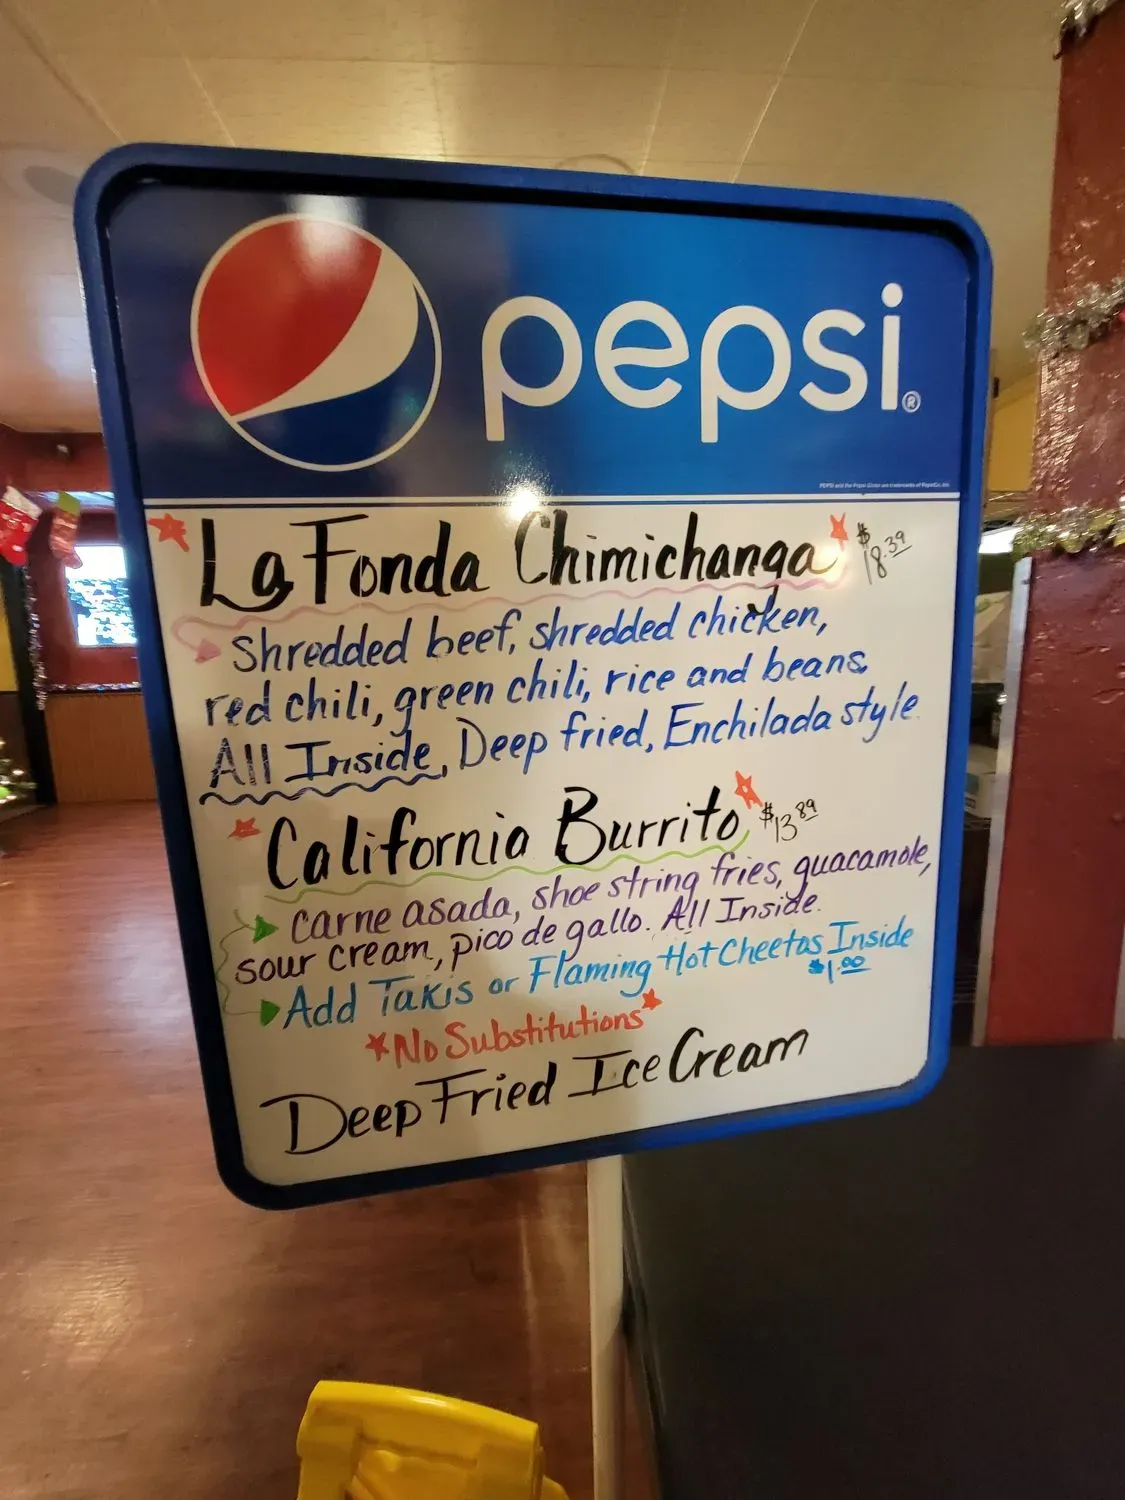 pepsi®
PEPSI and the Pepsi Globe are trademarks of PepsiCo, Inc.
La Fonda Chimichanga $18.39
Shredded beef, shredded chicken,
red chili, green chili, rice and beans
All Inside, Deep fried, Enchilada style
California Burrito $13.89
Carne asada, shoe string fries, guacamole,
sour cream, pico de gallo. All Inside.
Add Takis or Flaming Hot Cheetos Inside
$1.00
*No Substitutions*
Deep Fried Ice Cream